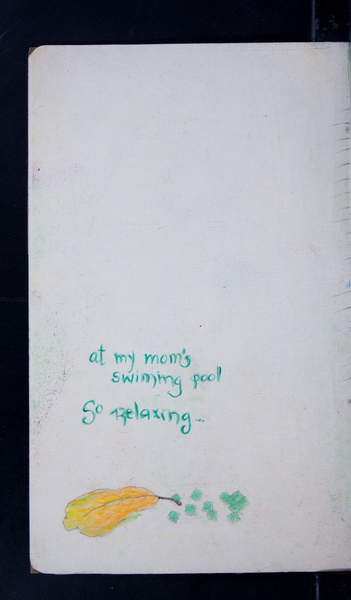 at my mom's
swiming pool
So relaxing...